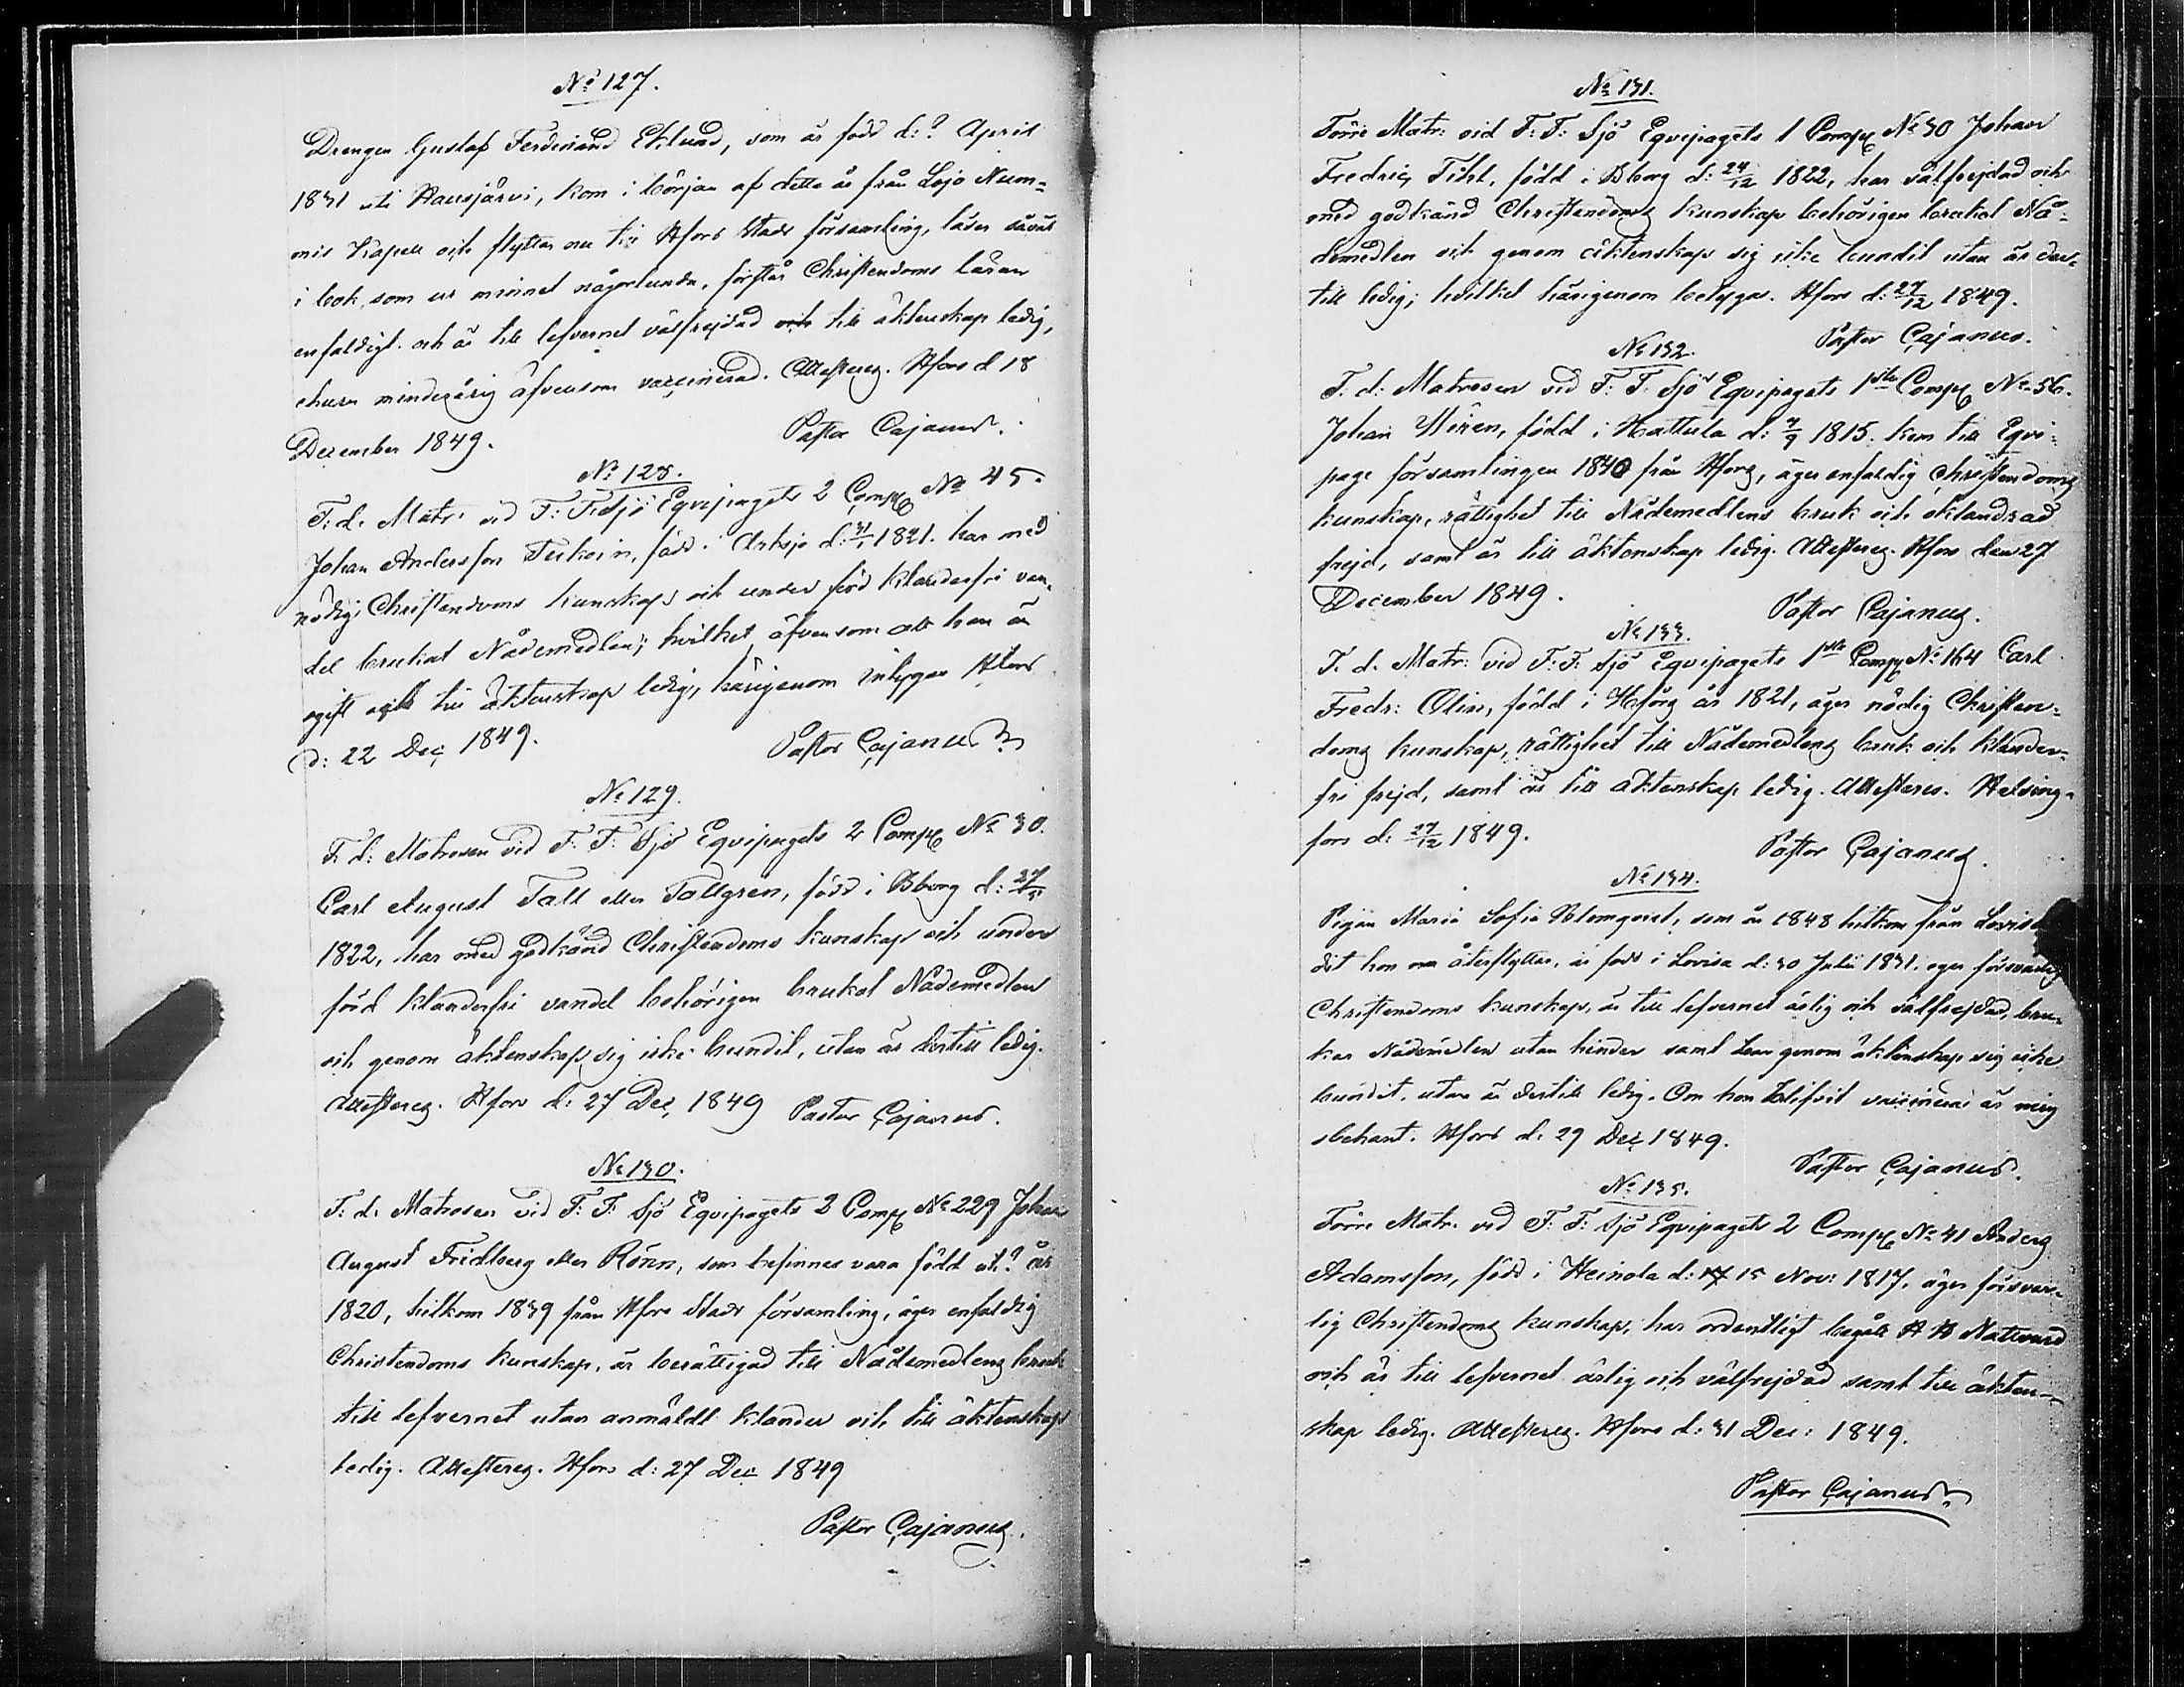 No 127.
Drengen Gustaf Ferdinand Eklund, som är född d: ? April
1831 uti Hausjärvi, kom i början af detta år från Lojo Num=
mis Kapell och flyttar nu till Hfors Stads församling, läser såväl
i bok som ur minnet någorlunda, förstår Christendoms läran
enfaldigt och är till lefvernet välfrejdad och till äktenskap ledig,
ehuru minderårig äfvensom vaccinerad. Attesteras. Hfors d 18
December 1849.
Pastor Cajanus.
No 128.
F: d. Matr: vid F: F: Sjö Eqvipagets 2 Comp No 45.
Johan Andersson född i Artsjö d: 1821. har med
nödig Christendoms kunskap och under förd klanderfri van¬
del brukat Nådemedlen; hvilket, äfvensom att han är
ogift och till äktenskap ledig, härigenom intygar Hfors
d: 22 Dec 1849.
Pastor Cajanus
No 129.
F. d: Matrosen vid F: F: Sjö Eqvipagets 2 Comp No 30.
Carl August Tall eller Tallgren, född i Bborg d:
1822, har med godkänd Christendoms kunskap och under
förd klanderfri vandel behörigen brukat Nådemedlen
och genom äktenskap sig icke bundit, utan är dertill ledig.
Attesteras. Hfors d: 27 Dec 1849
Pastor Cajanus.
No 130.
F: d. Matrosen vid F: F: Sjö Eqvipagets 2 Comp No 229 Johan
August Fridberg eller Rönn, som befinnes vara född uti ? år
1820, hitkom 1839 från Hfors Stads församling, äger enfaldig
Christendoms kunskap, är berättigad till Nådemedlens bruk
till lefvernet utan anmäldt klander och till äktenskap
ledig. Attesteras. Hfors d: 27 Dec 1849
Pastor Cajanus.
No 131.
Förre Matr: vid F: F: Sjö Eqvipagets 1 Comp No 30 Johan
Fredric född i Bborg d: 24/12 1822, har välfrejdad och
med godkänd Christendoms kunskap behörigen brukat Nå¬
demedlen och genom äktenskap sig icke bundit utan är der¬
till ledig; hvilket härigenom betygas. Hfors d: 27/12 1849.
Pastor Cajanus.
No 132.
F. d: Matrosen vid F: F: Sjö Eqvipagets 1sta Comp No 56.
Johan född i Hattula d: 1815. kom till Eqvi¬
page församlingen 1840 från äger enfaldig Christendoms
kunskap, rättighet till Nådemedlens bruk och oklandrad
frejd, samt är till äktenskap ledig. Attesteras. Hfors den 27
December 1849.
Pastor Cajanus.
No 133.
F. d. Matr: vid F: F: Sjö Eqvipagets 1sta Comp No 164 Carl
Fredr: Olin, född i Hfors år 1821, äger nödig Christen¬
doms kunskap, rättighet till Nådemedlens bruk och klander¬
fri frejd, samt är till äktenskap ledig. Attesteras. Helsing¬
fors d: 27/12 1849.
Pastor Cajanus.
No 134.
Pigan Maria Sofia Blomqvist, som år 1848 hitkom från Lovisa
dit hon nu återflyttar, är född i Lovisa d: 30 Julii 1831. eger försvarlig
Christendoms kunskap, är till lefvernet ärlig och välfrejdad, bru¬
kar Nådemedlen utan hinder samt har genom äktenskap sig icke
bundit, utan är dertill ledig. Om hon blifvit vaccinerad är mig
obekant. Hfors d: 29 Dec 1849.
Pastor Cajanus.
No 135.
Förre Matr. vid F: F: Sjö Eqvipagets 2 Comp No 41 Anders
Adamsson, född i Heinola d: 15 Nov: 1817, äger försvar¬
lig Christendoms kunskap, har ordentligt begått H H Nattvard
och är till lefvernet ärlig och välfrejdad samt till äkten¬
skap ledig. Attesteras. Hfors d: 31 Dec: 1849.
Pastor Cajanus